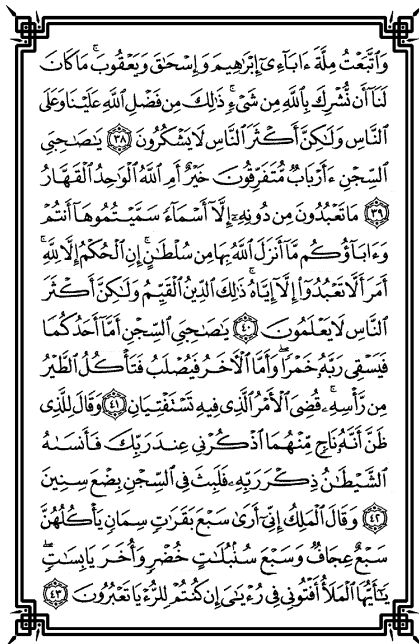 وَٱتَّبَعْتُ مِلَّةَ ءَابَآءِىٓ إِبْرَٰهِيمَ وَإِسْحَٰقَ وَيَعْقُوبَ ۚ مَا كَانَ
لَنَآ أَن نُّشْرِكَ بِٱللَّهِ مِن شَىْءٍ ۚ ذَٰلِكَ مِن فَضْلِ ٱللَّهِ عَلَيْنَا وَعَلَى
ٱلنَّاسِ وَلَٰكِنَّ أَكْثَرَ ٱلنَّاسِ لَا يَشْكُرُونَ ﴿٣٨﴾ يَٰصَٰحِبَىِ
ٱلسِّجْنِ ءَأَرْبَابٌ مُّتَفَرِّقُونَ خَيْرٌ أَمِ ٱللَّهُ ٱلْوَٰحِدُ ٱلْقَهَّارُ
﴿٣٩﴾ مَا تَعْبُدُونَ مِن دُونِهِۦٓ إِلَّآ أَسْمَآءً سَمَّيْتُمُوهَآ أَنتُمْ
وَءَابَآؤُكُم مَّآ أَنزَلَ ٱللَّهُ بِهَا مِن سُلْطَٰنٍ ۚ إِنِ ٱلْحُكْمُ إِلَّا لِلَّهِ ۚ
أَمَرَ أَلَّا تَعْبُدُوٓا۟ إِلَّآ إِيَّاهُ ۚ ذَٰلِكَ ٱلدِّينُ ٱلْقَيِّمُ وَلَٰكِنَّ أَكْثَرَ
ٱلنَّاسِ لَا يَعْلَمُونَ ﴿٤٠﴾ يَٰصَٰحِبَىِ ٱلسِّجْنِ أَمَّآ أَحَدُكُمَا
فَيَسْقِى رَبَّهُۥ خَمْرًا ۖ وَأَمَّا ٱلْءَاخَرُ فَيُصْلَبُ فَتَأْكُلُ ٱلطَّيْرُ
مِن رَّأْسِهِۦ ۚ قُضِىَ ٱلْأَمْرُ ٱلَّذِى فِيهِ تَسْتَفْتِيَانِ ﴿٤١﴾ وَقَالَ لِلَّذِى
ظَنَّ أَنَّهُۥ نَاجٍ مِّنْهُمَا ٱذْكُرْنِى عِندَ رَبِّكَ فَأَنسَىٰهُ
ٱلشَّيْطَٰنُ ذِكْرَ رَبِّهِۦ فَلَبِثَ فِى ٱلسِّجْنِ بِضْعَ سِنِينَ
﴿٤٢﴾ وَقَالَ ٱلْمَلِكُ إِنِّىٓ أَرَىٰ سَبْعَ بَقَرَٰتٍ سِمَانٍ يَأْكُلُهُنَّ
سَبْعٌ عِجَافٌ وَسَبْعَ سُنۢبُلَٰتٍ خُضْرٍ وَأُخَرَ يَابِسَٰتٍ ۖ
يَٰٓأَيُّهَا ٱلْمَلَأُ أَفْتُونِى فِى رُءْيَٰىَ إِن كُنتُمْ لِلرُّءْيَا تَعْبُرُونَ ﴿٤٣﴾